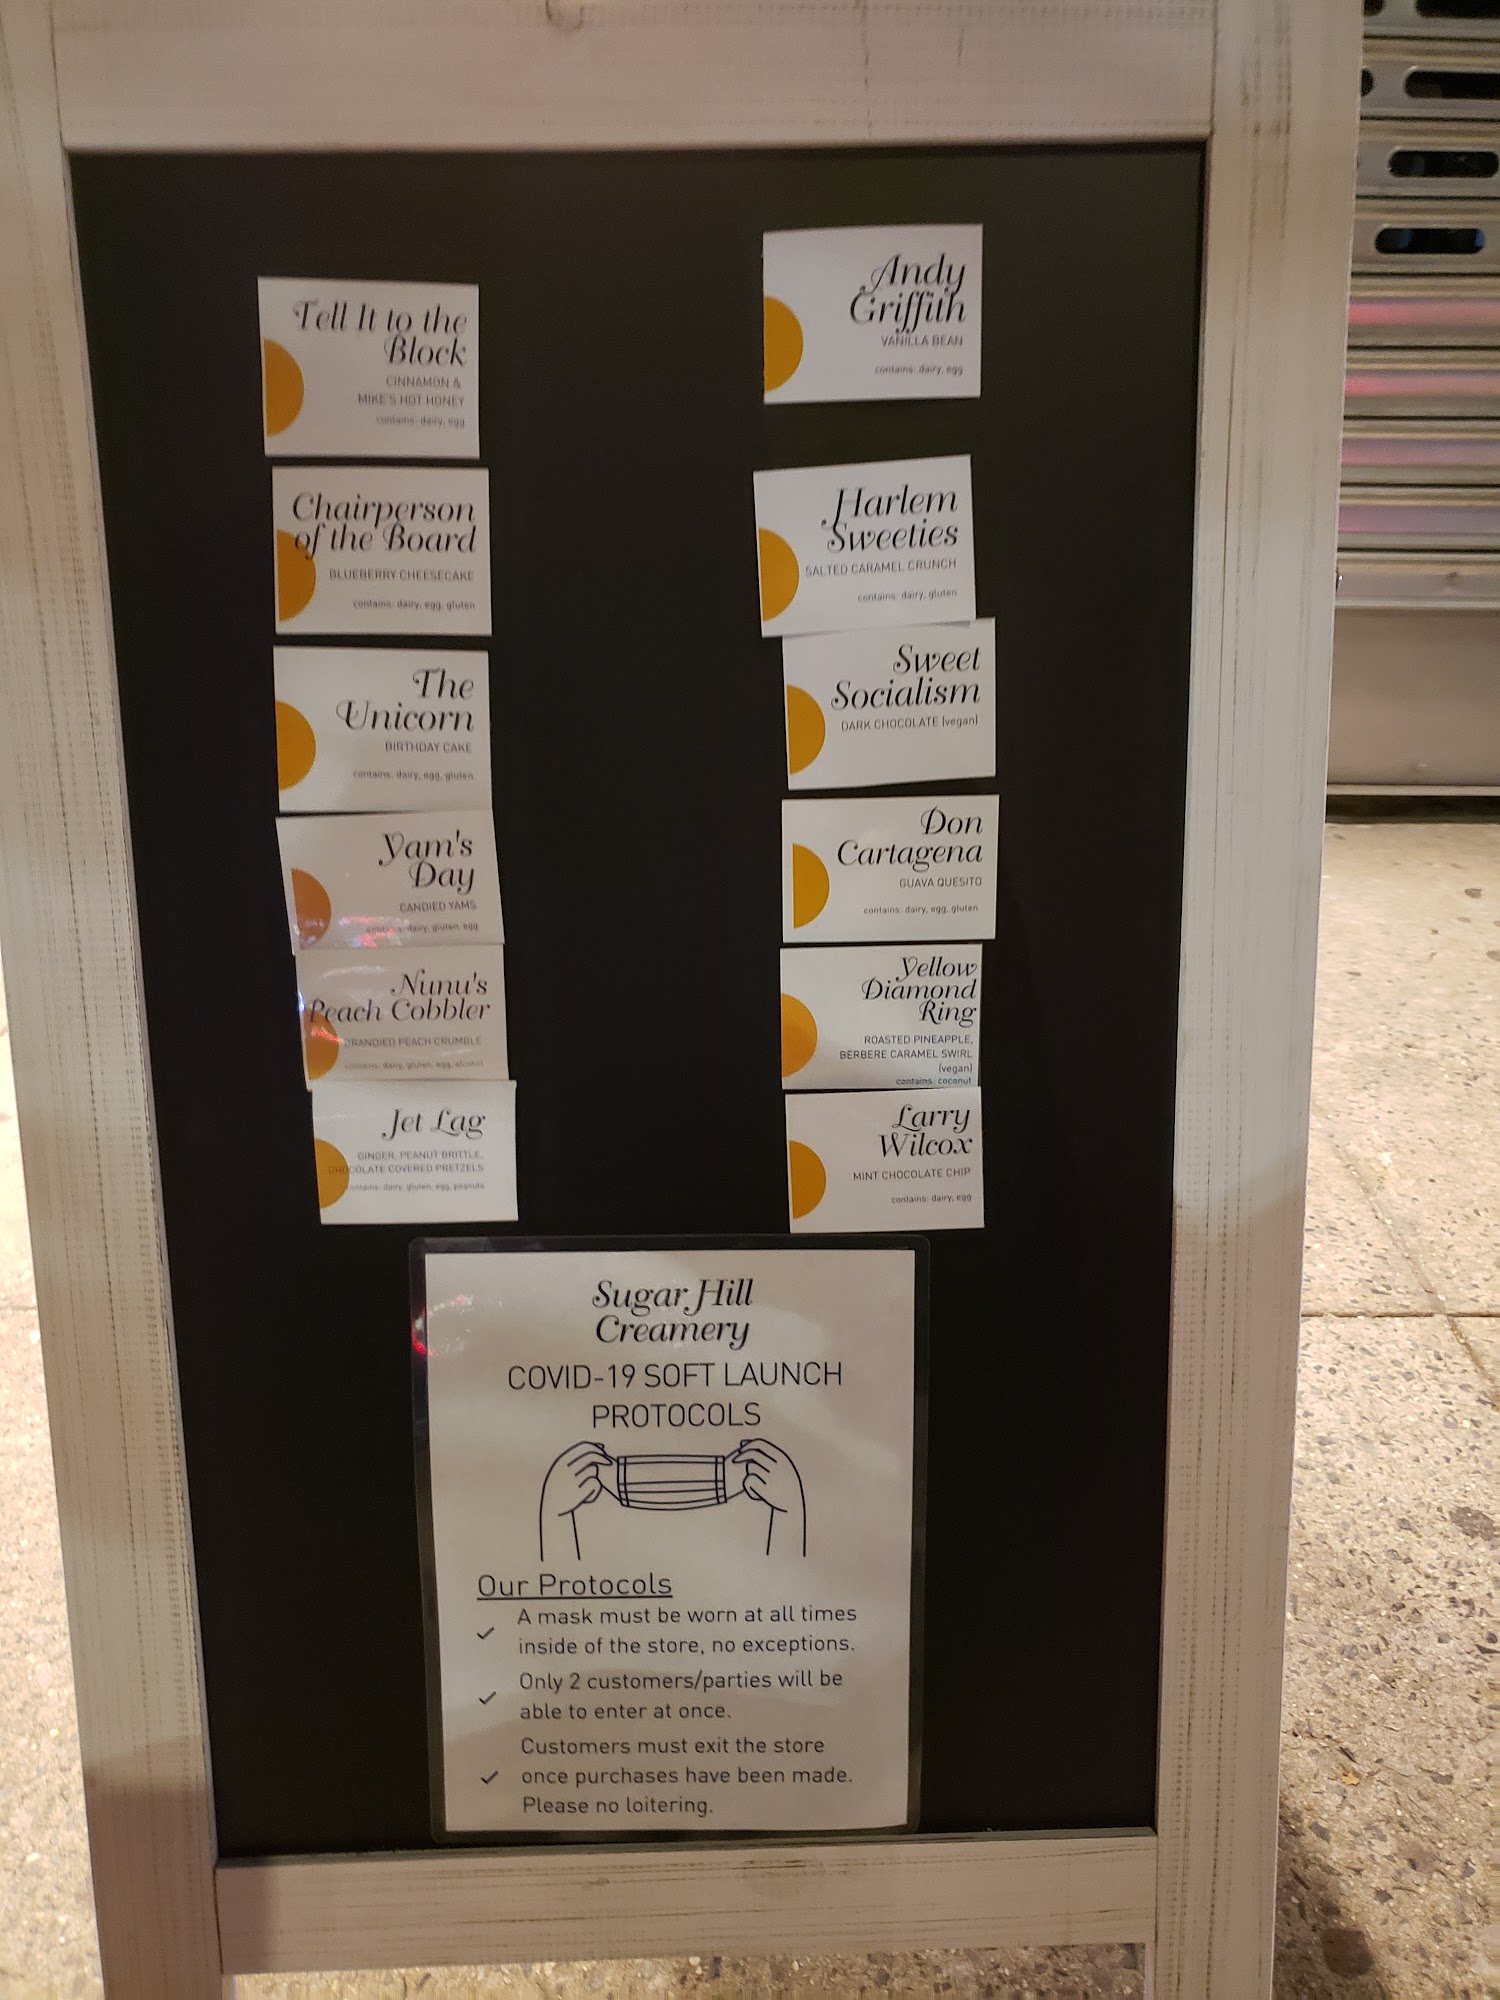 Tell It to the
Block
CINNAMON &
MIKE'S HOT HONEY
contains: dairy, egg
Chairperson
of the Board
BLUEBERRY CHEESECAKE
contains: dairy, egg, gluten
The
Unicorn
BIRTHDAY CAKE
contains: dairy, egg, gluten
Yam's
Day
CANDIED YAMS
contains: dairy, gluten, egg
Nunu's
Peach Cobbler
BRANDIED PEACH CRUMBLE
contains: dairy, gluten, egg, alcohol
Jet Lag
GINGER, PEANUT BRITTLE,
CHOCOLATE COVERED PRETZELS
contains: dairy, gluten, egg, peanuts
Andy
Griffith
VANILLA BEAN
contains: dairy, egg
Harlem
Sweeties
SALTED CARAMEL CRUNCH
contains: dairy, gluten
Sweet
Socialism
DARK CHOCOLATE (vegan)
Don
Cartagena
GUAVA QUESITO
contains: dairy, egg, gluten
Yellow
Diamond
Ring
ROASTED PINEAPPLE,
BERBERE CARAMEL SWIRL
(vegan)
contains: coconut
Larry
Wilcox
MINT CHOCOLATE CHIP
contains: dairy, egg
Sugar Hill
Creamery
COVID-19 SOFT LAUNCH
PROTOCOLS
Our Protocols
A mask must be worn at all times
inside of the store, no exceptions.
Only 2 customers/parties will be
able to enter at once.
Customers must exit the store
once purchases have been made.
Please no loitering.